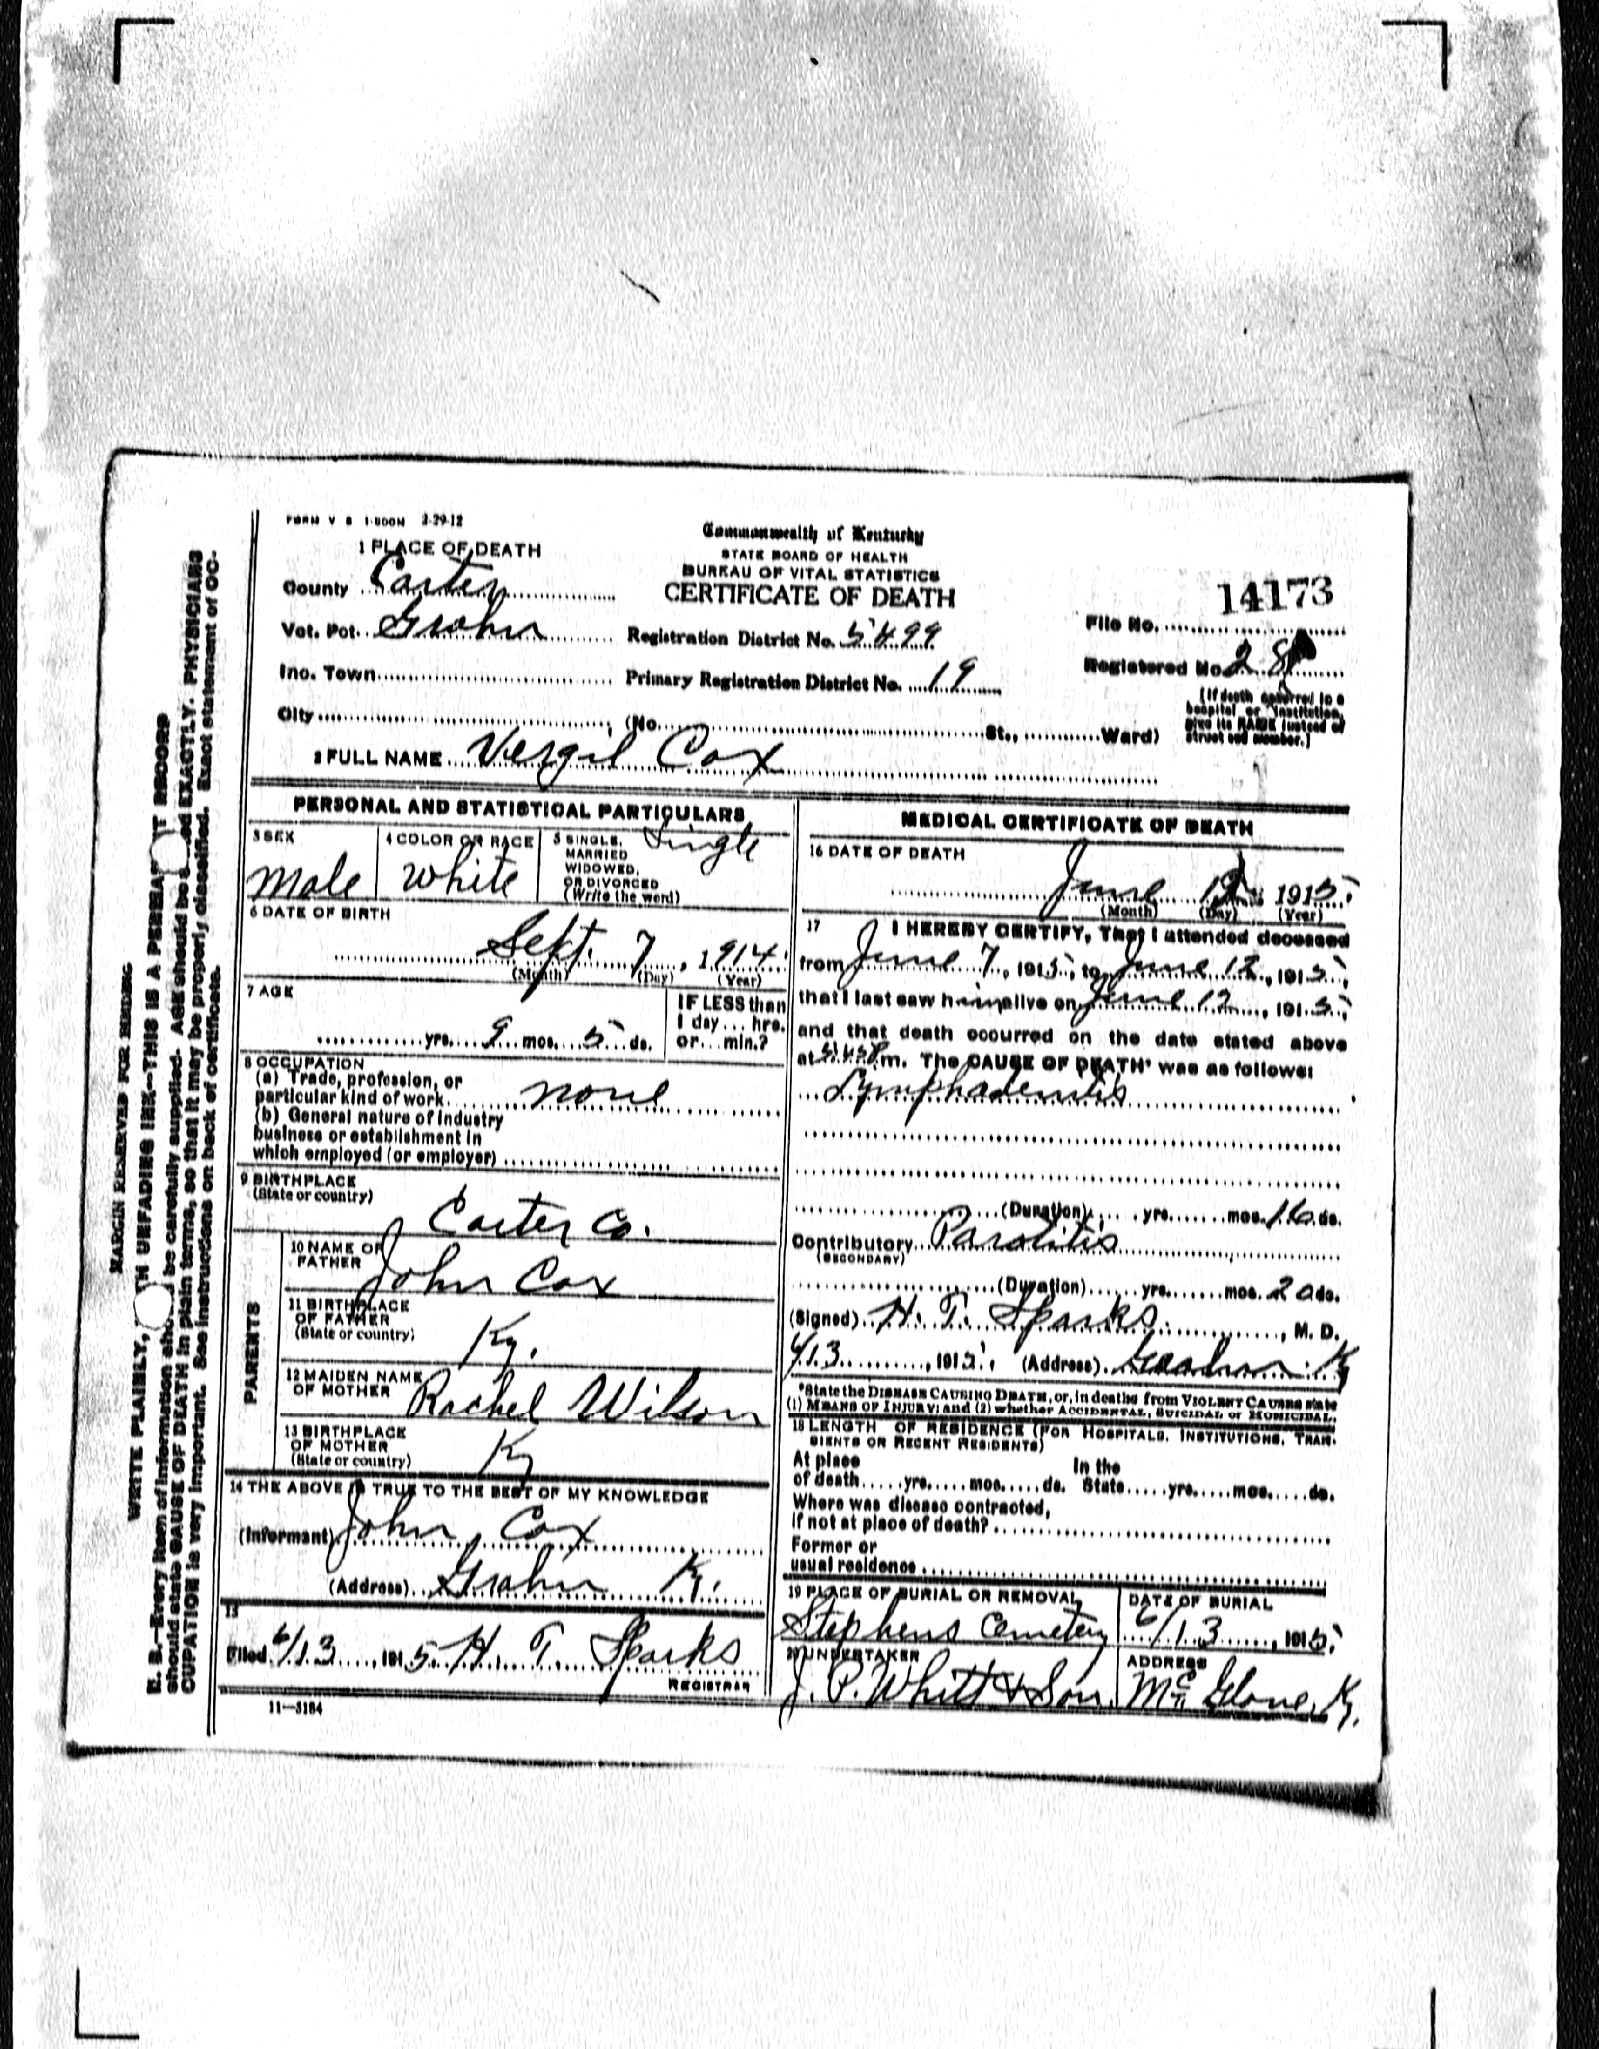 FORM V S 1-500M 2-29-12
Commonwealth of Kentucky
STATE BOARD OF HEALTH
BUREAU OF VITAL STATISTICS
CERTIFICATE OF DEATH
1 PLACE OF DEATH
County Carter
Vot. Pct. Grahn
Inc. Town
City (No. St., Ward)
Registration District No. 5499
Primary Registration District No. 19
14173
File No.
Registered No. 28
(If death occurred in a
hospital or institution,
give its NAME instead of
street and number.)
2 FULL NAME Vergil Cox
PERSONAL AND STATISTICAL PARTICULARS
3 SEX
Male
4 COLOR OR RACE
White
5 SINGLE,
MARRIED
WIDOWED,
OR DIVORCED
(Write the word)
Single
6 DATE OF BIRTH
Sept. 7, 1914
(Month) (Day) (Year)
7 AGE
yrs. 9 mos. 5 ds.
IF LESS than
1 day... hrs.
or... min.?
8 OCCUPATION
(a) Trade, profession, or
particular kind of work none
(b) General nature of industry
business or establishment in
which employed (or employer)
9 BIRTHPLACE
(State or country)
Carter Co.
PARENTS
10 NAME OF
FATHER
John Cox
11 BIRTHPLACE
OF FATHER
(State or country)
Ky.
12 MAIDEN NAME
OF MOTHER
Rachel Wilson
13 BIRTHPLACE
OF MOTHER
(State or country)
Ky
14 THE ABOVE IS TRUE TO THE BEST OF MY KNOWLEDGE
(Informant) John Cox
(Address) Grahn Ky.
15
Filed 6/13, 1915 H. T. Sparks
REGISTRAR
11—3184
MEDICAL CERTIFICATE OF DEATH
16 DATE OF DEATH
June 12 1915
(Month) (Day) (Year)
17 I HEREBY CERTIFY, That I attended deceased
from June 7, 1915, to June 12, 1915,
that I last saw him alive on June 12, 1915,
and that death occurred on the date stated above
at m. The CAUSE OF DEATH* was as follows:
Lymphadenitis
(Duration) yrs. mos. 16 ds.
Contributory Parotitis
(SECONDARY)
(Duration) yrs. mos. 20 ds.
(Signed) H. T. Sparks, M. D.
1915. (Address) Grahn Ky
*State the DISEASE CAUSING DEATH, or, in deaths from VIOLENT CAUSES state
(1) MEANS OF INJURY; and (2) whether ACCIDENTAL, SUICIDAL or HOMICIDAL.
18 LENGTH OF RESIDENCE (FOR HOSPITALS, INSTITUTIONS, TRAN-
SIENTS OR RECENT RESIDENTS)
At place
of death yrs. mos. ds.
In the
State yrs. mos. ds.
Where was disease contracted,
if not at place of death?
Former or
usual residence
19 PLACE OF BURIAL OR REMOVAL
Stephens Cemetery
DATE OF BURIAL
6/13, 1915
20 UNDERTAKER
J. P. Whitt & Son
ADDRESS
Mc Glone, Ky.
MARGIN RESERVED FOR BINDING
WRITE PLAINLY, UNFADING INK—THIS IS A RECORD
N. B.—Every item of information be carefully supplied. AGE should be EXACTLY. PHYSICIANS
should state CAUSE OF DEATH in plain terms, so that it may be properly classified. Exact statement of OC-
CUPATION is very important. See instructions on back of certificate.